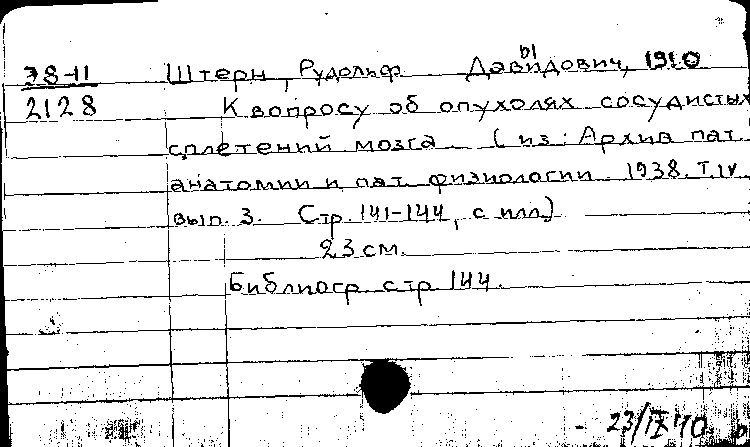 38-11
2128
Штерн, Рудольф Давидович, 1910
ы
К вопросу об опухолях сосудистых
сплетений мозга. (из: Архив пат.
анатомии и пат. физиологии. 1938. Т. IV
вып. 3. Стр. 141-144, с илл.)
23 см.
Библиогр. стр. 144.
- 23/IX 40